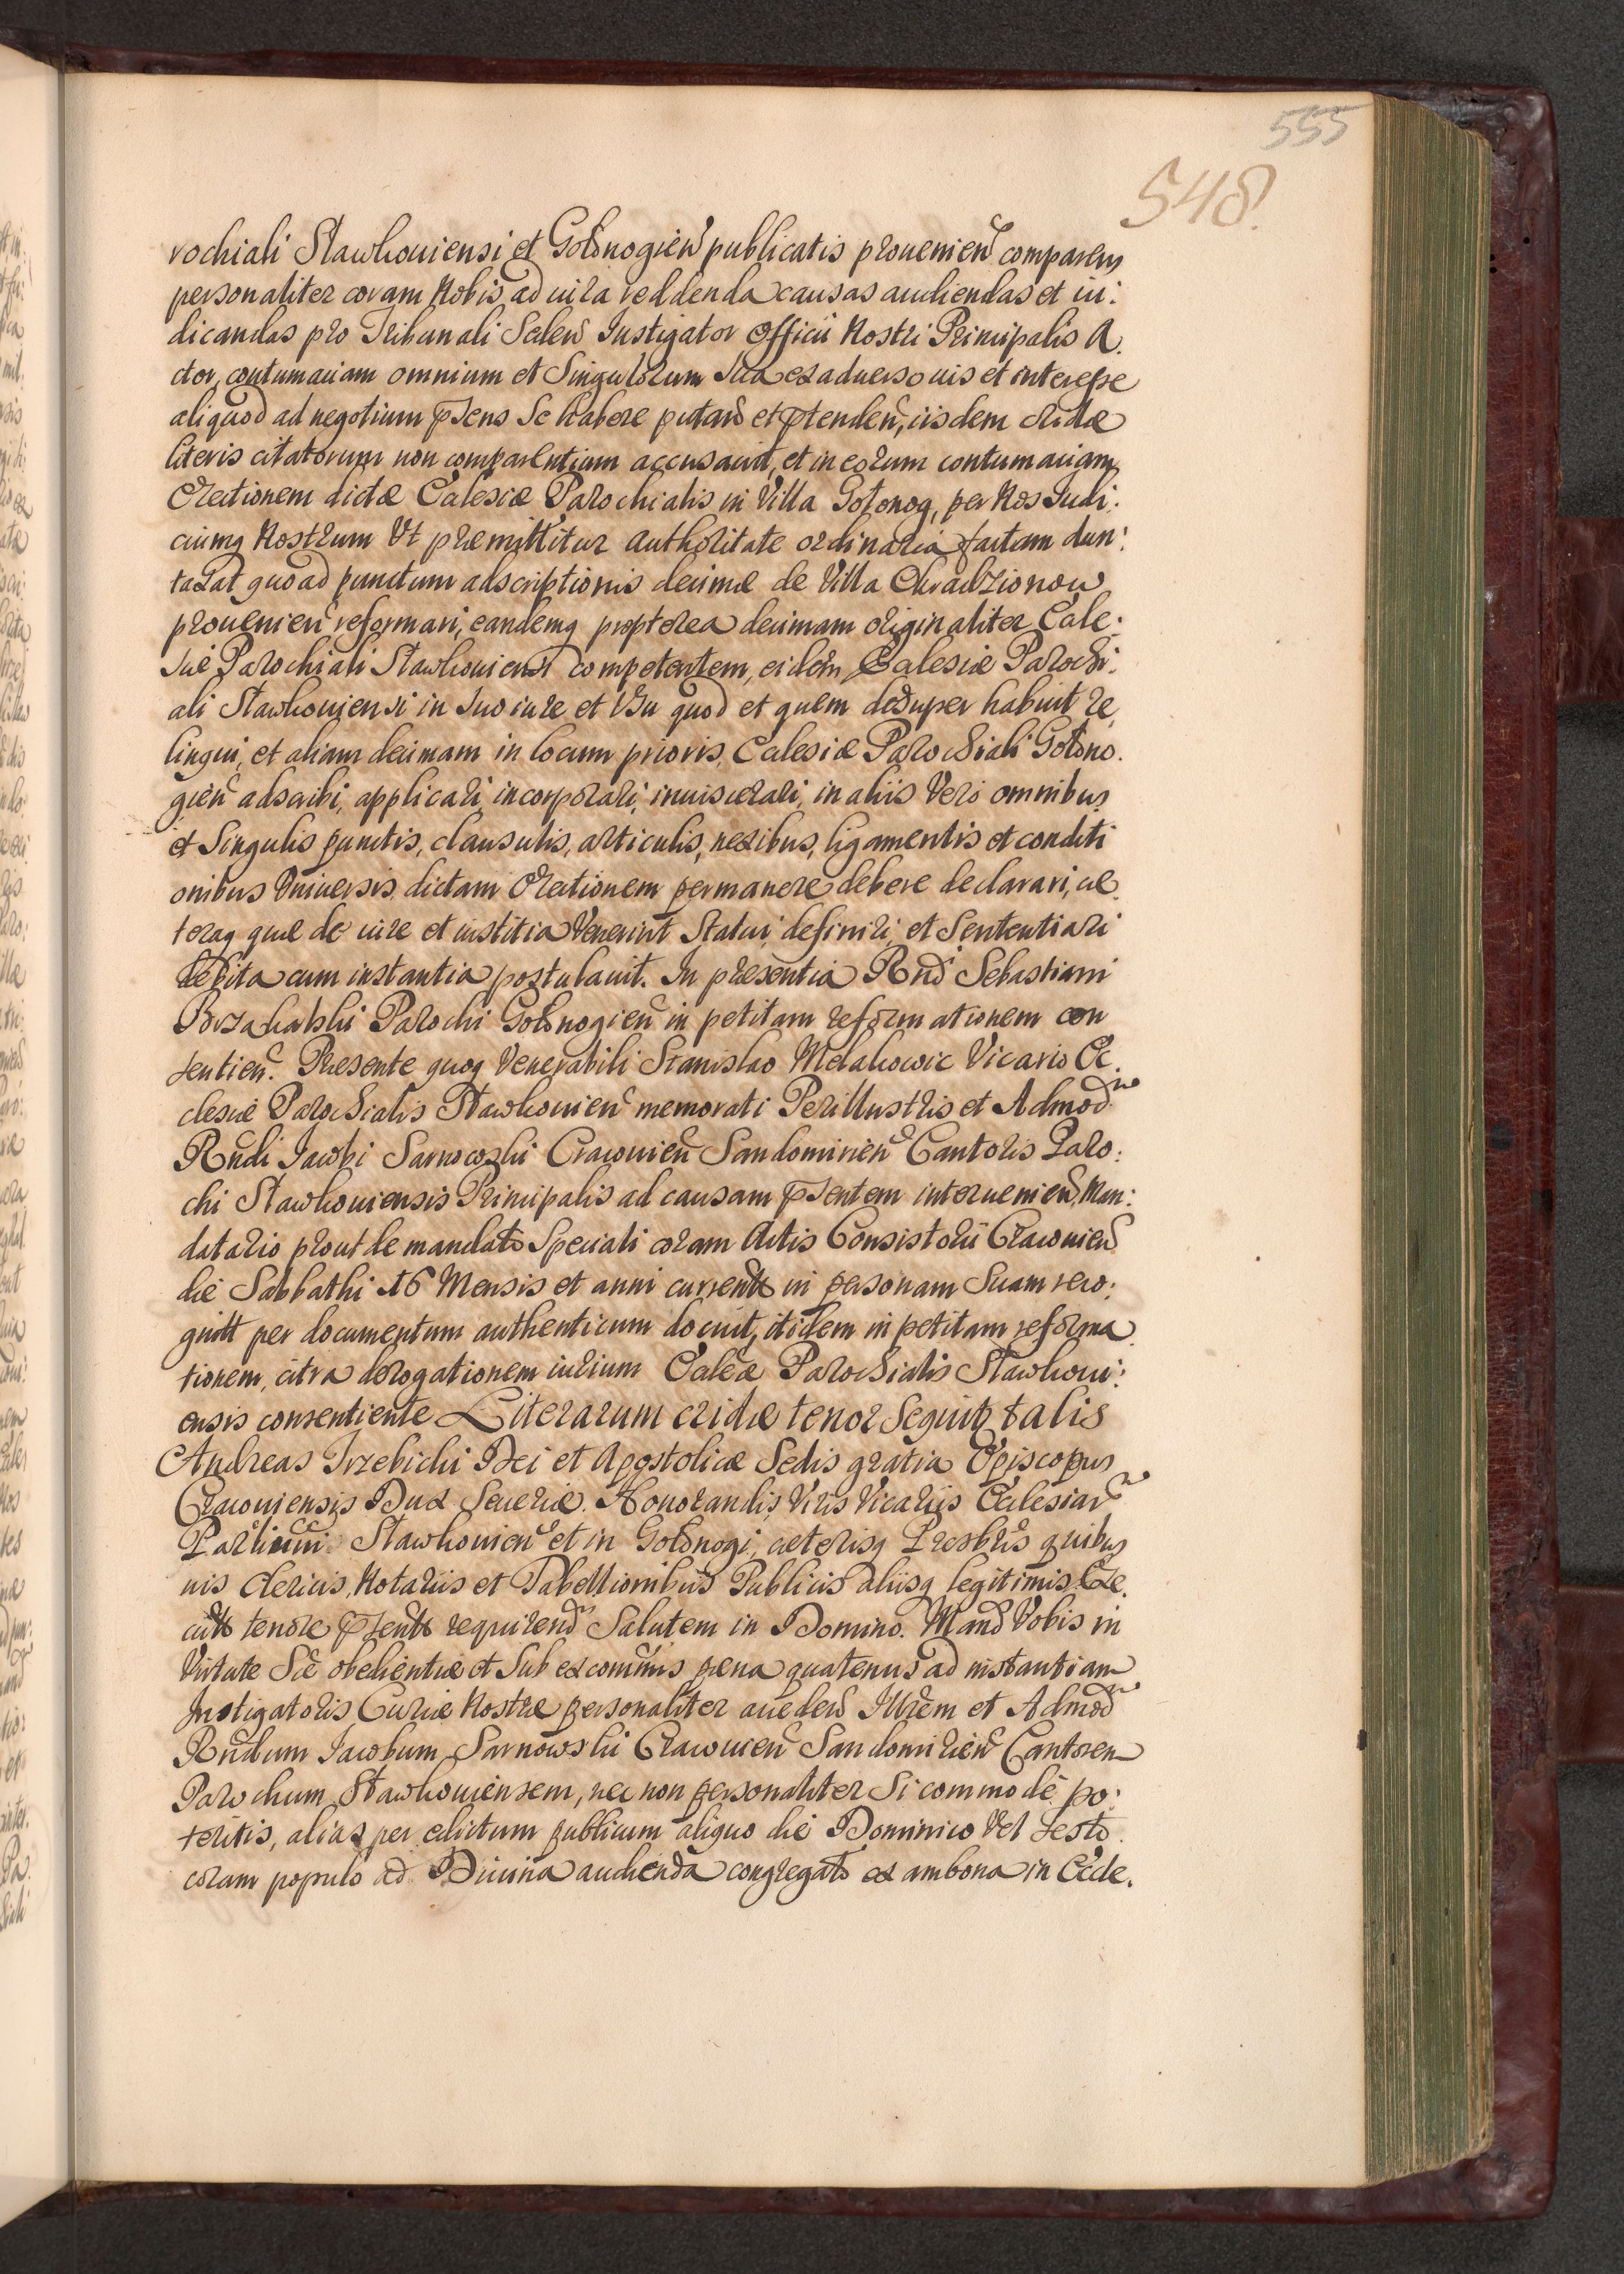 555
548.
rochiali Sławkouiensi et Gołonogien̄ publicatis prouenien̄ comparens
personaliter coram Nobis ad iura reddenda causas audiendas et iu:
dicandas pro Tribunali Seden̄ Instigator Officii Nostri Principalis A.
ctor, contumaciam omnium et Singulorum Sua ex aduerso uis et interesse
aliquod ad negotium p̄sens Se habere putan̄ et p̄tenden̄, iisdem cridæ
literis citatorum non comparentium accusauit, et in eorum contumaciam
Erectionem dictæ Ecclesiæ Parochialis in Villa Gołonog, per Nos Iudi:
ciumq Nostrum Vt præmittitur authoritate ordinaria factam dun:
taxat quoad punctum adscriptionis decimæ de Villa Chruadzionow
prouenien̄ reformari, eandemq propterea decimam originaliter Eccle:
siæ Parochiali Sławkouiensi competentem, eidem Ecclesiæ Parochi:
ali Sławkouiensi in Suo iure et Vsu quod et quem desuper habuit re
linqui, et aliam decimam in locum prioris, Ecclesiæ Parochiali Gołono.
gien̄ adscribi, applicari, incorporari, inuiscerari, in aliis Vero omnibus
et Singulis punctis, clausulis, articulis, nexibus, ligamentis et conditi
onibus Vniuersis dictam Erectionem permanere debere declarari, cæ
teraq quæ de iure et iustitia Venerint Statui, definiri, et Sententiari
debita cum instantia postulauit. In præsentia Rnd̄i Sebastiani
Parochi Gołonogien̄ in petitam reformationem con
sentien̄. Præsente quoq Venerabili Stanislao Vicario Ec.
clesiæ Parochialis Sławkouien̄ memorati Perillustris et Admod̄
Rn̄di Iacobi Sarnowski Cracouien̄ Sandomirien̄ Cantoris Paro:
chi Sławkouiensis Principalis ad causam p̄sentem interuenien̄, Man:
datario prout de mandato Speciali coram Actis Consistorii Cracouien̄
die Sabbathi 16 Mensis et anni curren̄ in personam Suam reco:
gnitt per documentum authenticum docuit, itidem in petitam reforma
tionem, citra derogationem iurium Eccl̄æ Parochialis Sławkoui:
ensis consentiente Literarum cridæ tenor Sequitr talis
Andreas Trzebicki Dei et Apostolicæ Sedis gratia Episcopus
Cracouiensis Dux Seueriæ. Honorandis Viris Vicariis Ecclesiar̄
Sławkouien̄ et in Gołonogi, cæterisq Presbr̄is quibus
uis clericis, Notariis et Tabellionibus Publicis aliisq legitimis Exe.
tenore p̄sen̄ requiren̄d Salutem in Domino. Mand̄ Vobis in
Virtute S̄æ obedientiæ et Sub excom̄nis pœna quatenus ad instantiam
Instigatoris Curiæ Nostræ personaliter acceden̄ Ill̄rem et Admod̄
Rn̄dum Iacobum Sarnowski Cracouien̄ Sandomirien̄ Cantorem
Parochum Sławkouiensem, nec non personaliter Si commode po:
teritis, alias per edictum publicum aliquo die Dominico Vel festo
coram populo ad Diuina audienda congregato ex ambona in Eccle.